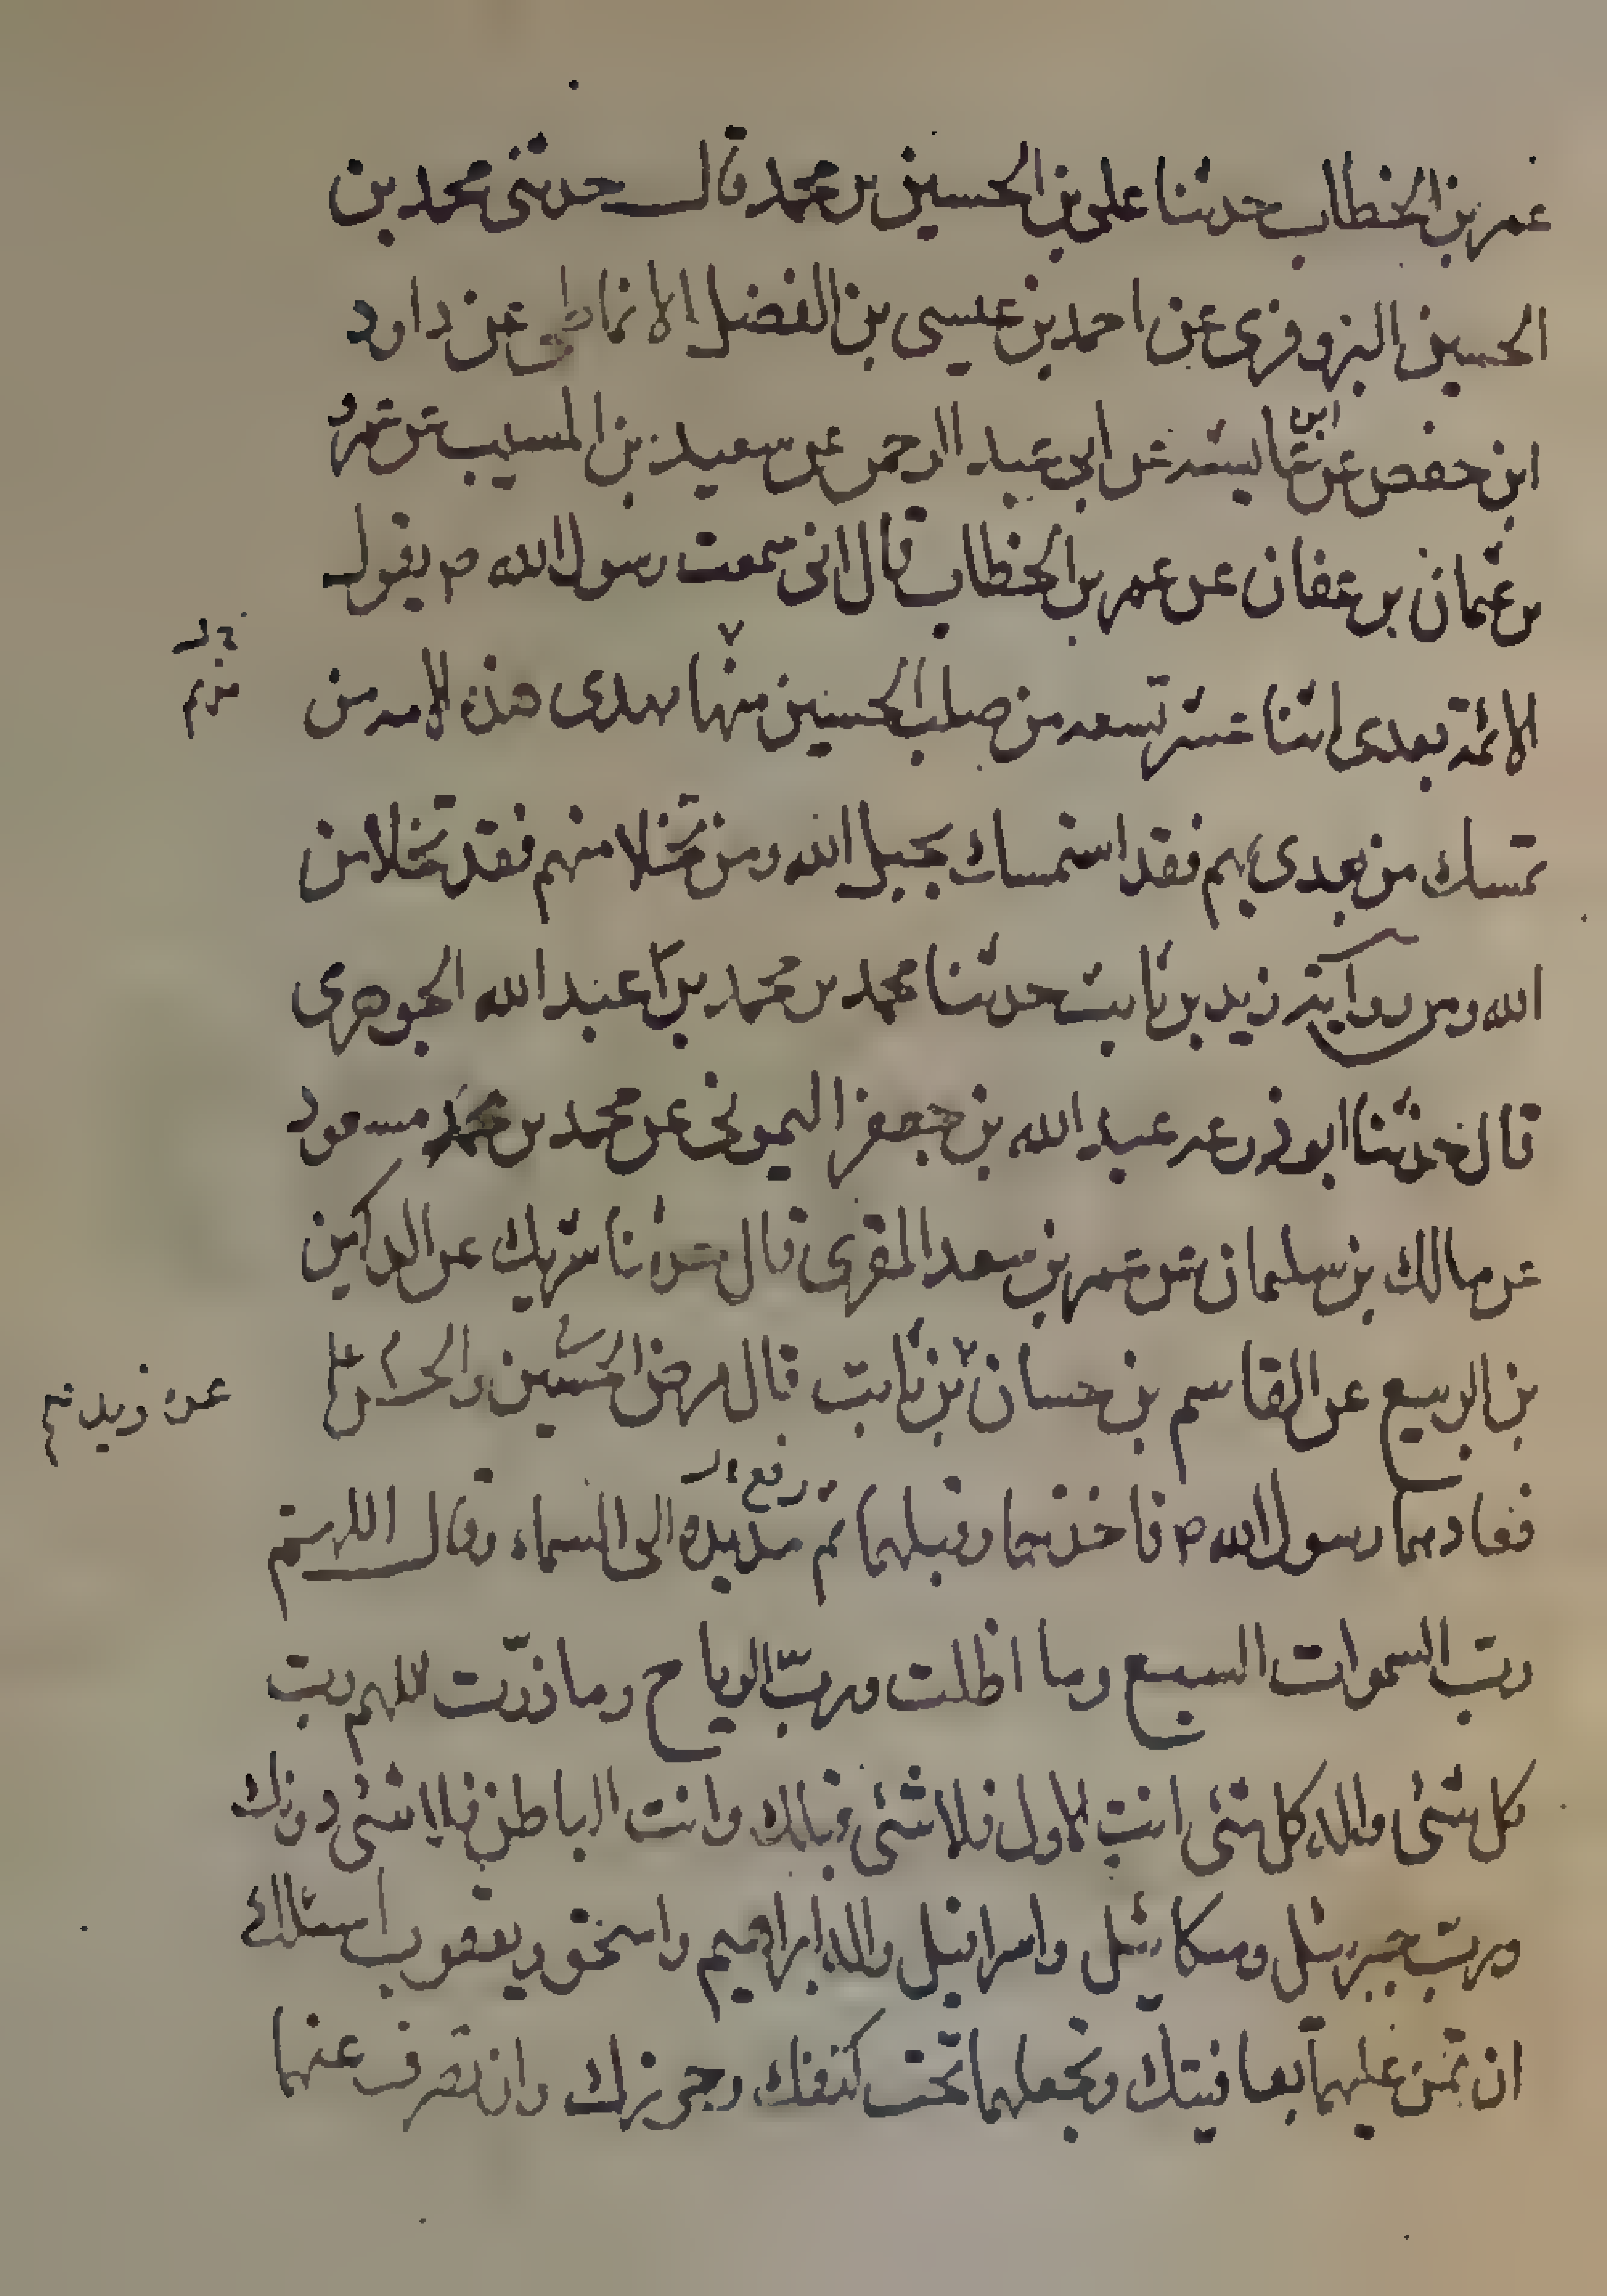 عمر بن الخطاب حدثنا على بن الحسين بن محمد قال حدثنى محمد بن
الحسين البزوفرى عن احمد بن عيسى بن الفضل الانماطى عن داود
ابن حفص عن ابن عايشه عن ابى عبد الرحمن عن سعيد بن المسيب عن عمرو
بن عثمان بن عفان عن عمر بن الخطاب قال انى سمعت رسول الله ص يقول
الائمة بعدى اثنا عشر تسعه من صلب الحسين منها مهدى هذه الامه من
تمسك من بعدى بهم فقد استمسك بحبل الله ومن تخلا منهم فقد تخلا من
الله ومن رواية زيد بن ثابت حدثنا محمد بن محمد بن عبد الله الجوهرى
قال حدثنا ابو زرعه عبد الله بن جعفر اليمونى عن محمد بن مسعود
عن مالك بن سليمان عن عمر بن سعد المقرى قال حدثنا شريك عن الدكين
بن الربيع عن القاسم بن حسان بن ثابت قال مرض الحسين والحسن على
عن زيد بن
فعادهما رسول الله ص فاخذهما وقبلهما ثم رفع يده الى السماء وقال اللهم
رب السموات السبع وما اظلت ورب الرياح وما ذرت اللهم رب
كل شئ واله كل شئ انت الاول فلا شئ قبلك وانت الباطن فلا شئ دونك
ورب جبرئيل وميكائيل واسرافيل واله ابراهيم واسحق ويعقوب اسئلك
ان تمن عليهما بعافيتك وتجعلهما تحت كنفك وحرزك وان تصرف عنهما